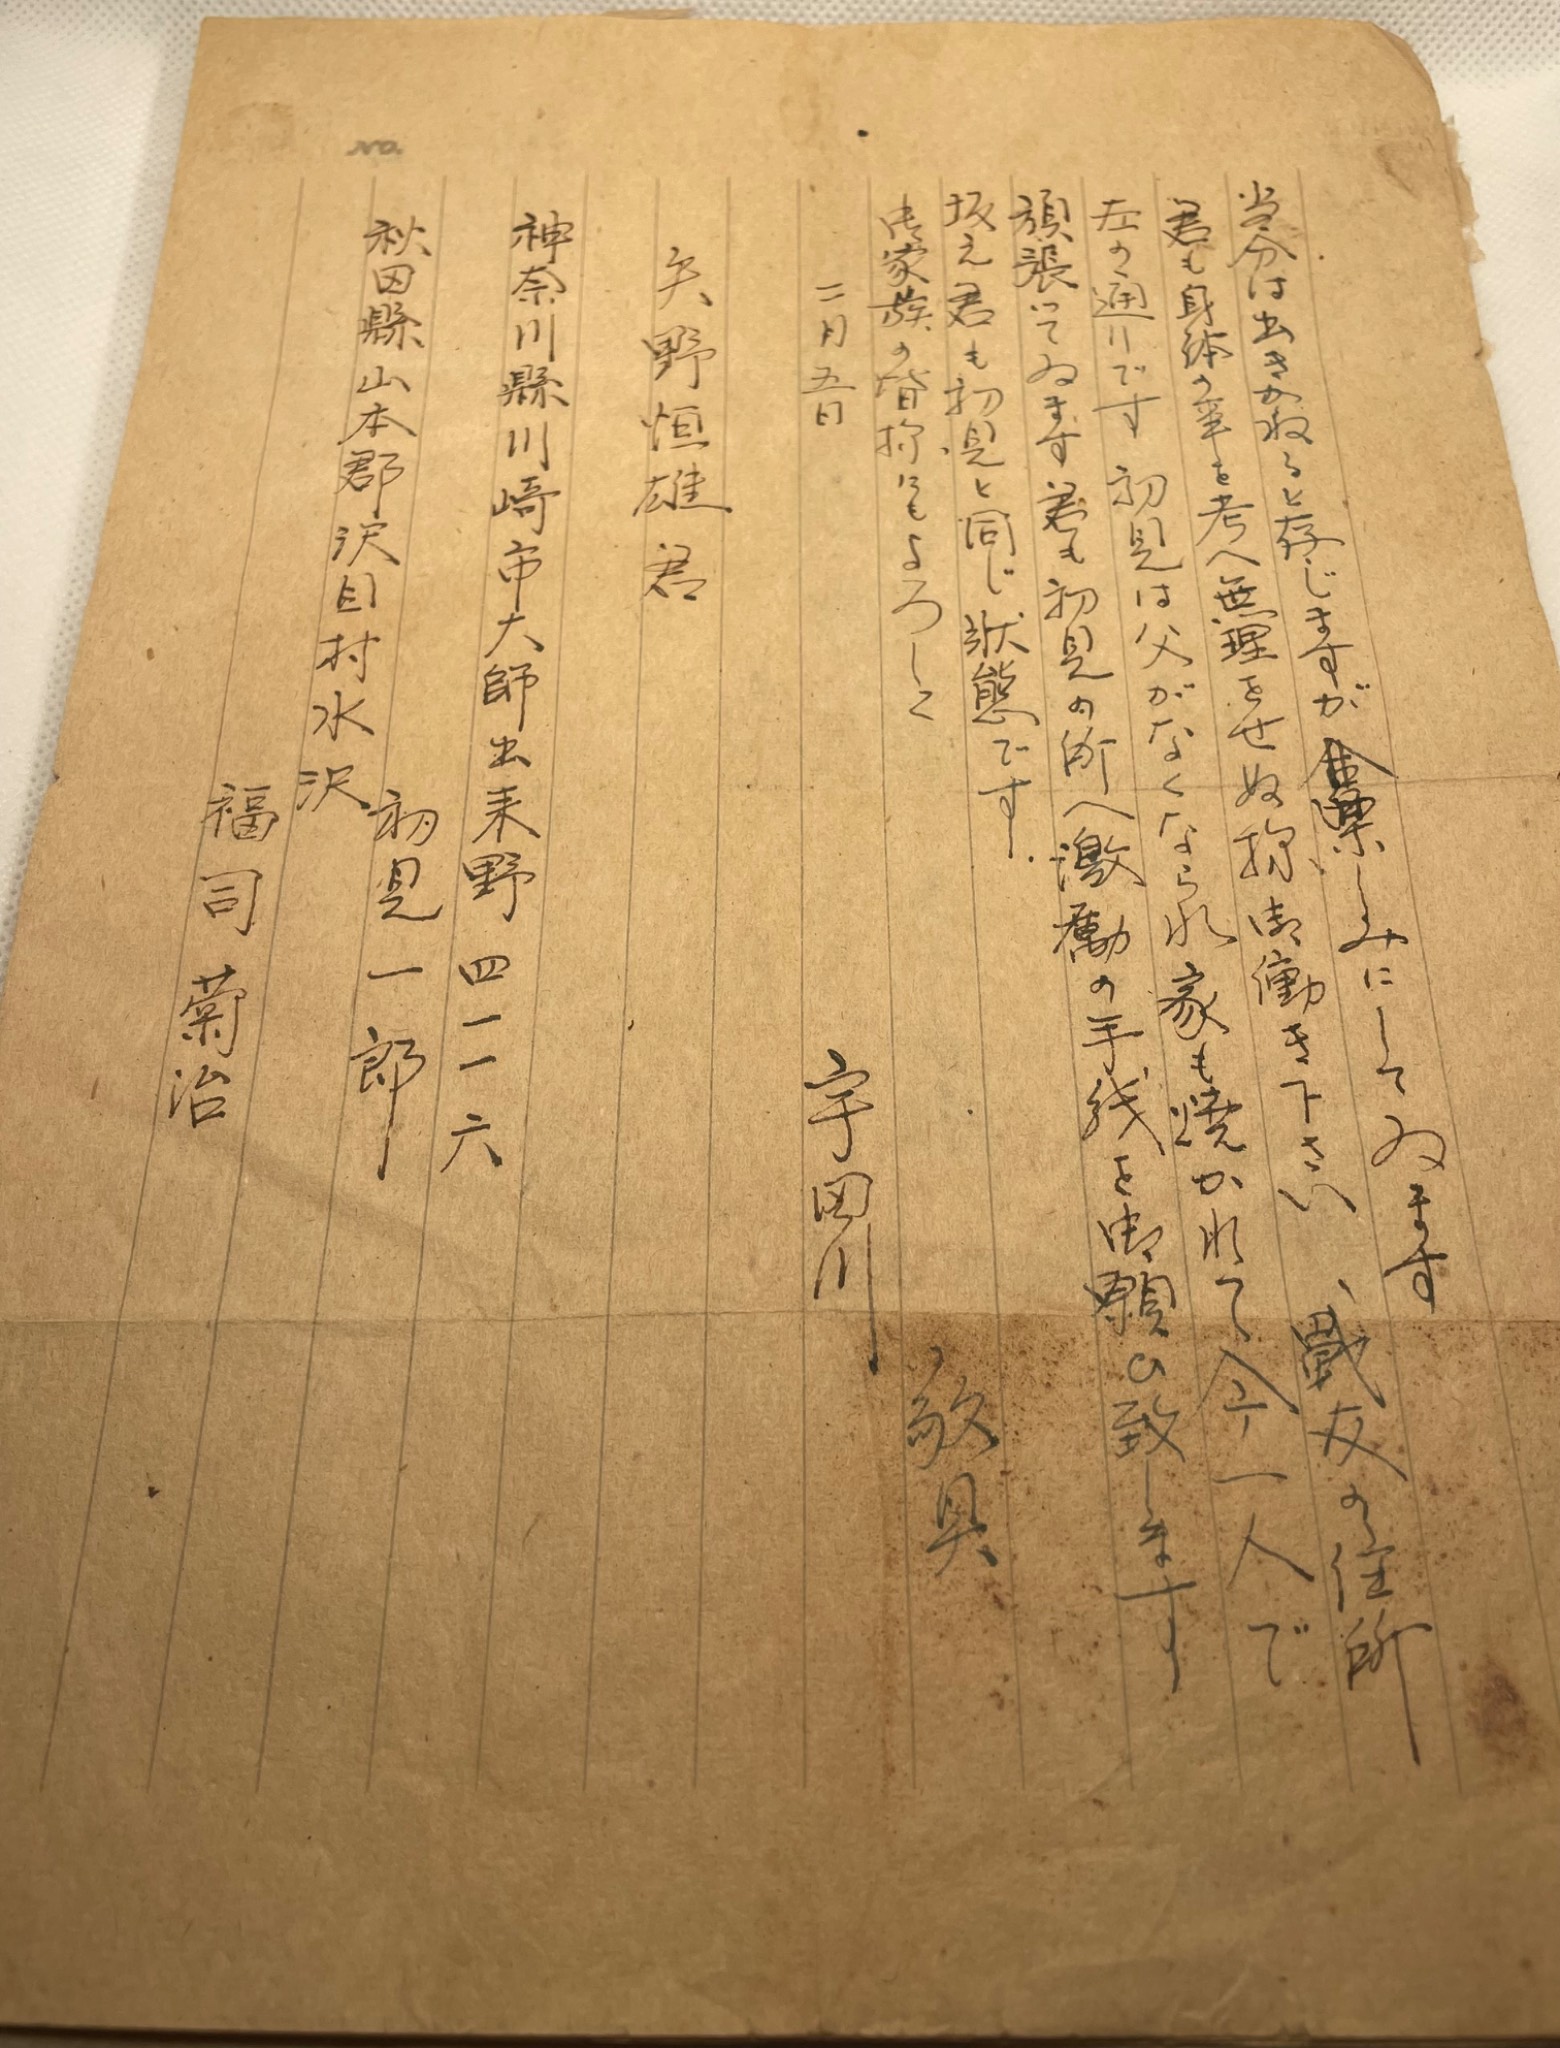 No.
当分は出きかねると存じますが楽しみにしてゐます
君も身体の事を考へ無理をせぬ様御働き下さい、戦友の住所
左の通りです 初見は父がなくなられ家も焼かれて今一人で
頑張つてゐます君も初見の所へ激励の手紙を御願ひ致します
坂元君も初見と同じ状態です.
御家族の皆様にもよろしく
敬具
二月五日
宇田川
矢野恒雄君
神奈川縣川崎市大師出来野四一一六
初見一郎
秋田縣山本郡沢目村水沢
福司菊治